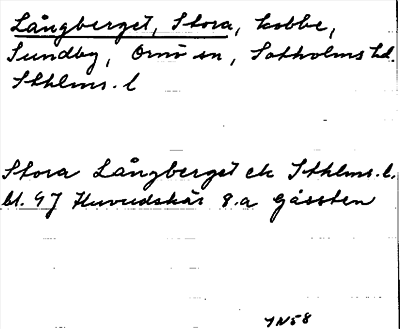 Långberget, Stora, kobbe,
Sundby, Ornö sn, Sotholms hd.
Sthlms. l
Stora Långberget ek Sthlms. l.
bl. 47 Huvudskär 8.a Gåssten
JN58